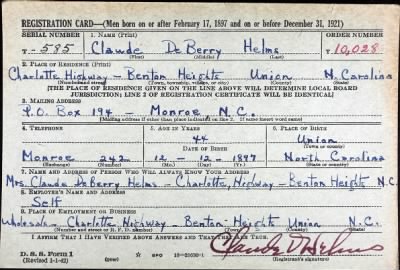 REGISTRATION CARD—(Men born on or after February 17, 1897 and on or before December 31, 1921)
SERIAL NUMBER 1. NAME (Print) ORDER NUMBER
T-585 Claude DeBerry Helms T10,028
(First) (Middle) (Last)
2. PLACE OF RESIDENCE (Print)
Charlotte Highway - Benton Heights Union N. Carolina
(Number and street) (Town, township, village, or city) (County) (State)
[THE PLACE OF RESIDENCE GIVEN ON THE LINE ABOVE WILL DETERMINE LOCAL BOARD
JURISDICTION; LINE 2 OF REGISTRATION CERTIFICATE WILL BE IDENTICAL]
3. MAILING ADDRESS
P.O. Box 194 - Monroe N.C.
[Mailing address if other than place indicated on line 2. If same insert word same]
4. TELEPHONE 5. AGE IN YEARS 6. PLACE OF BIRTH
44 Union
DATE OF BIRTH (Town or county)
Monroe 242 12 - 12 - 1897 North Carolina
(Exchange) (Number) (Mo.) (Day) (Yr.) (State or country)
7. NAME AND ADDRESS OF PERSON WHO WILL ALWAYS KNOW YOUR ADDRESS
Mrs. Claude DeBerry Helms - Charlotte Highway - Benton Heights N.C.
8. EMPLOYER'S NAME AND ADDRESS
Self
9. PLACE OF EMPLOYMENT OR BUSINESS
Wholesale - Charlotte Highway - Benton Heights Union N.C.
(Number and street or R. F. D. number) (Town) (County) (State)
I AFFIRM THAT I HAVE VERIFIED ABOVE ANSWERS AND THAT THEY ARE TRUE.
D. S. S. Form 1
(Revised 1-1-42) GPO 16—21630-1 Claude D Helms
(Registrant's signature)